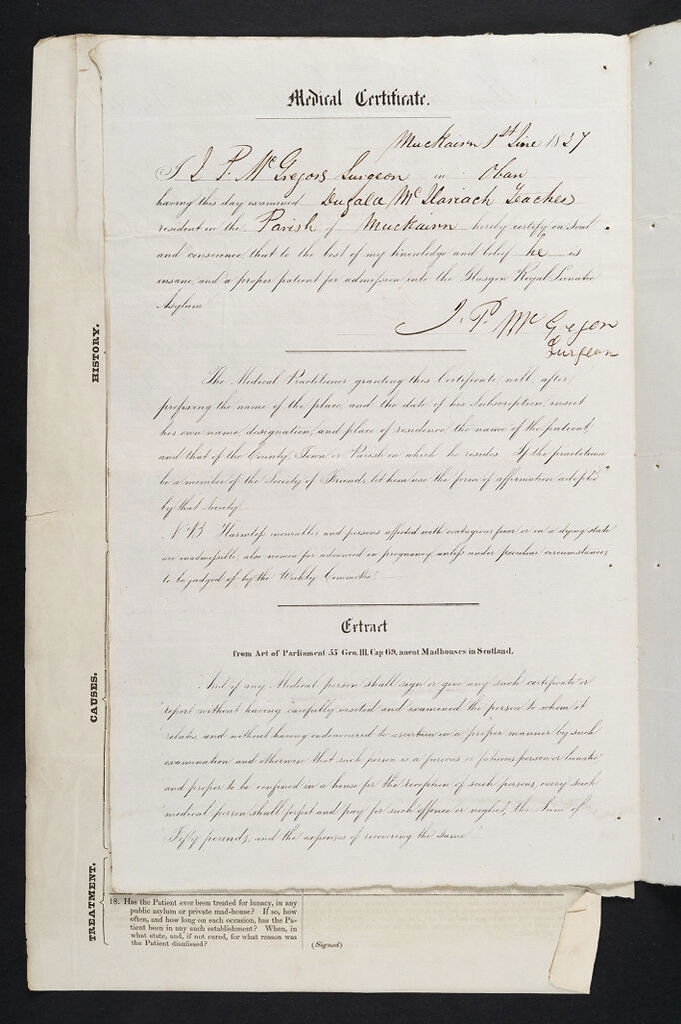 Medical Certificate.
Muckairn 1st June 1827
I J. P. McGregor Surgeon in Oban
having this day examined Dugald McIlariach Teacher
resident in the Parish of Muckairn hereby certify on Soul
and conscience, that to the best of my knowledge and belief he is
insane, and a proper patient for admission into the Glasgow Royal Lunatic
Asylum
J. P. McGregor
Surgeon
The Medical Practitioner granting this Certificate, will, after
prefixing the name of the place, and the date of his Subscription, insert
his own name, designation, and place of residence, the name of the patient,
and that of the County Town or Parish in which he resides. If the practitioner
be a member of the Society of Friends, let him use the form of affirmation adopted
by that Society
N.B. Harmless incurables and persons affected with contagious fever or in a dying state
are inadmissible, also women far advanced in pregnancy unless under peculiar circumstances
to be judged of by the Weekly Committee.
Extract
from Act of Parliament 55 Geo. III. Cap 69, anent Madhouses in Scotland.
And if any Medical person shall sign or give any such certificate or
report without having carefully visited and examined the person to whom it
relates, and without having endeavoured to ascertain in a proper manner by such
examination and otherwise that such person is a furious or fatuous person or lunatic
and proper to be confined in a house for the reception of such persons, every such
medical person shall forfeit and pay for such offence or neglect, the Sum of
Fifty pounds, and the expenses of recovering the same
HISTORY.
CAUSES.
TREATMENT.
18. Has the Patient ever been treated for lunacy, in any
public asylum or private mad-house? If so, how
often, and how long on each occasion, has the Pa-
tient been in any such establishment? When, in
what state, and, if not cured, for what reason was
the Patient dismissed?
(Signed)